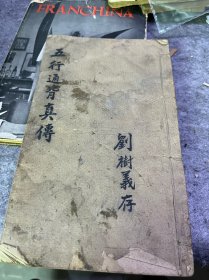 FRANCHINA
五行通背真傳
劉樹義存